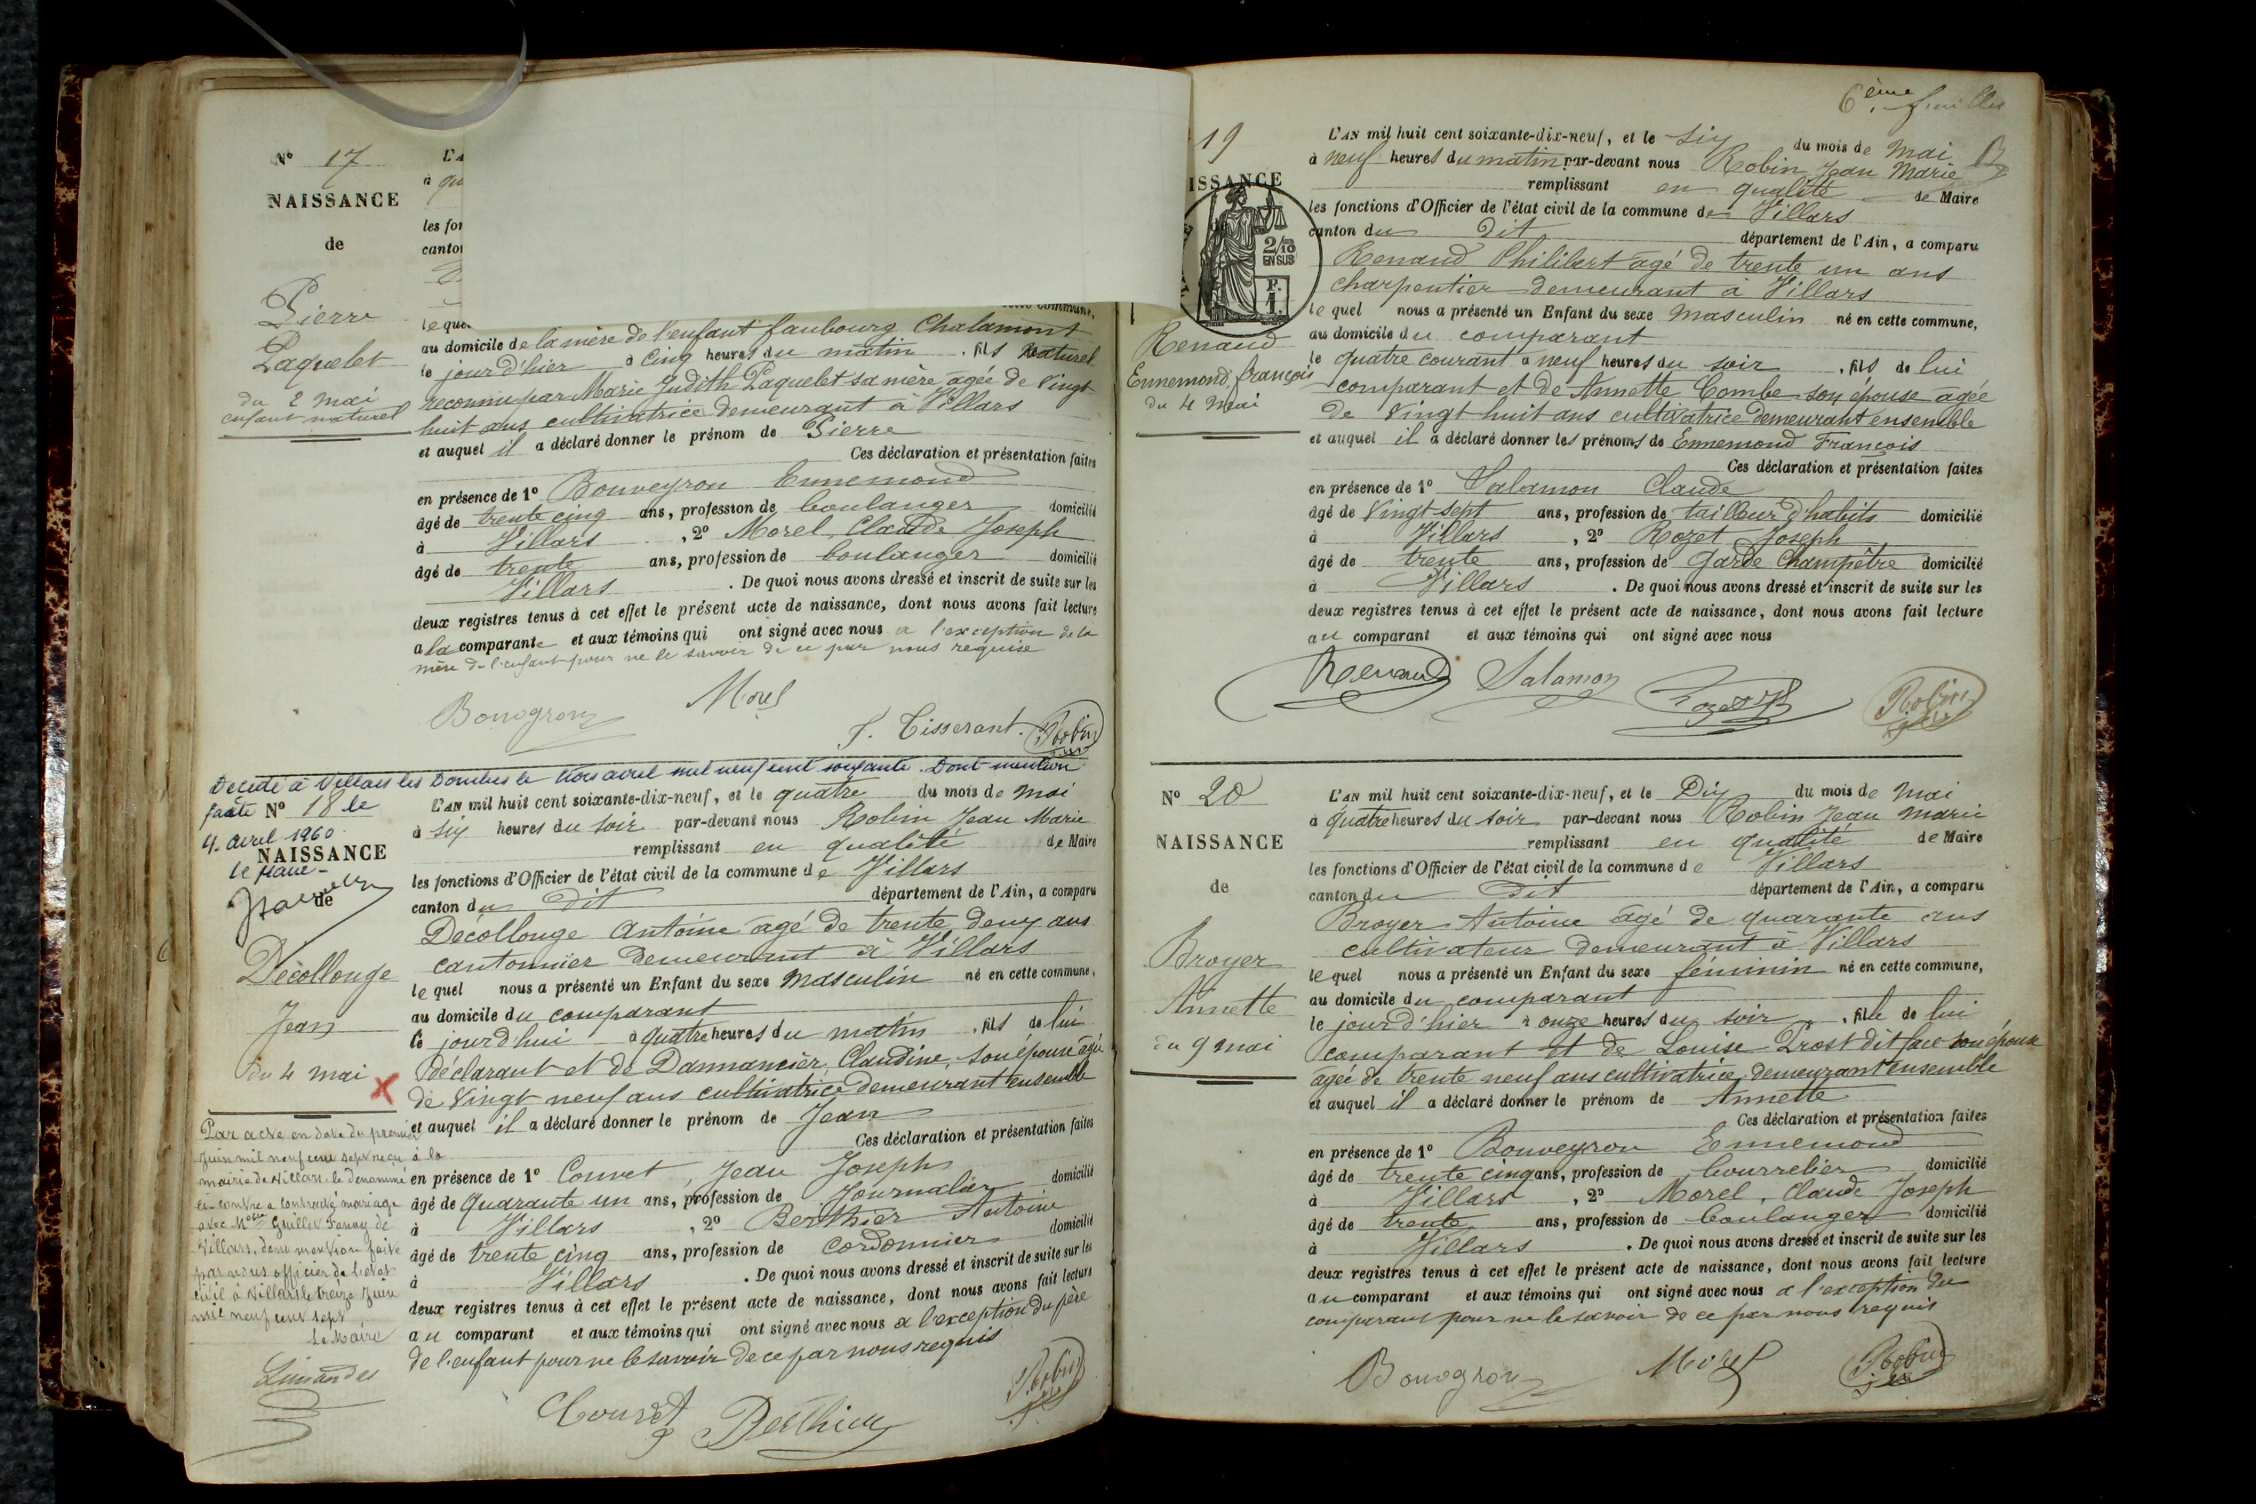 N° 17
NAISSANCE
de
Pierre
Paquelet
du 2 mai
enfant naturel
L'A
à qu
les fon
canton
le quel
cette commune,
au domicile de la mère de l'enfant faubourg Chalamont
le jour d'hier à cinq heures du matin . fils naturel
reconnu par Marie Judith Paquelet sa mère agée de vingt
huit ans cultivatrice demeurant à Villars
et auquel il a déclaré donner le prénom de Pierre
Ces déclaration et présentation faites
en présence de 1° Bouveyron Ennemond
âgé de trente cinq ans, profession de boulanger domicilié
à Villars , 2° Morel, Claude Joseph
âgé de trente ans, profession de boulanger domicilié
Villars . De quoi nous avons dressé et inscrit de suite sur les
deux registres tenus à cet effet le présent acte de naissance, dont nous avons fait lecture
a la comparante et aux témoins qui ont signé avec nous a l'exception de la
mère de l'enfant pour ne le savoir de ce par nous requise
Morel
F. Tisserant. Robin
Décédé à Villars les Dombes le trois avril mil neuf cent soixante. Dont mention
faite le
4. avril 1960
le Maire
N° 18
NAISSANCE
de
Décollonge
Jean
du 4 mai
X
Par acte en date du premier
Juin mil neuf cent sept reçu à la
mairie de Villars, le dénommé
ci-contre a contracté mariage
avec Guillet Fanny de
Villars, dont mention faite
par nous officier de l'état
civil à Villars le treize Juin
mil neuf cent sept
Le Maire
L'AN mil huit cent soixante-dix-neuf, et le quatre du mois de mai
à six heures du soir par-devant nous Robin Jean Marie
remplissant en qualité de Maire
les fonctions d'Officier de l'état civil de la commune de Villars
canton du dit département de l'Ain, a comparu
Décollonge Antoine agé de trente deux ans
cantonnier demeurant à Villars
le quel nous a présenté un Enfant du sexe masculin né en cette commune,
au domicile du comparant
le jourd'hui à quatre heures du matin . fils de lui
déclarant et de Dannancier, Claudine, son épouse agée
de vingt neuf ans cultivatrice demeurant ensemble
et auquel il a déclaré donner le prénom de Jean
Ces déclaration et présentation faites
en présence de 1° Couvet, Jean Joseph
âgé de quarante un ans, profession de Journalier domicilié
à Villars , 2° Berthier Antoine
âgé de trente cinq ans, profession de cordonnier domicilié
à Villars . De quoi nous avons dressé et inscrit de suite sur les
deux registres tenus à cet effet le présent acte de naissance, dont nous avons fait lecture
au comparant et aux témoins qui ont signé avec nous a l'exception du père
de l'enfant pour ne le savoir de ce par nous requis
Couvet Berthier Robin
6ème feuillet
19
ISSANCE
2/10
EN SUS
F.
1.
Renaud
Ennemond, françois
du 4 mai
L'AN mil huit cent soixante-dix-neuf, et le six du mois de mai
à neuf heures du matin par-devant nous Robin Jean Marie
remplissant en qualité de Maire
les fonctions d'Officier de l'état civil de la commune de Villars
canton du dit département de l'Ain, a comparu
Renaud Philibert agé de trente un ans
charpentier demeurant à Villars
le quel nous a présenté un Enfant du sexe masculin né en cette commune,
au domicile du comparant
le quatre courant à neuf heures du soir . fils de lui
comparant et de Annette Combe son épouse agée
de vingt huit ans cultivatrice demeurant ensemble
et auquel il a déclaré donner les prénoms de Ennemond François
Ces déclaration et présentation faites
en présence de 1° Salamon Claude
âgé de vingt sept ans, profession de tailleur d'habits domicilié
à Villars , 2° Rozet Joseph
âgé de trente ans, profession de garde Champêtre domicilié
à Villars . De quoi nous avons dressé et inscrit de suite sur les
deux registres tenus à cet effet le présent acte de naissance, dont nous avons fait lecture
au comparant et aux témoins qui ont signé avec nous
Renaud Salamon Rozet Robin
N° 20
NAISSANCE
de
Broyer
Annette
du 9 mai
L'AN mil huit cent soixante-dix-neuf, et le Dix du mois de mai
à quatre heures du soir par-devant nous Robin Jean Marie
remplissant en qualité de Maire
les fonctions d'Officier de l'état civil de la commune de Villars
canton du dit département de l'Ain, a comparu
Broyer Antoine agé de quarante ans
cultivateur demeurant à Villars
le quel nous a présenté un Enfant du sexe féminin né en cette commune,
au domicile du comparant
le jour d'hier à onze heures du soir , . fille de lui
comparant et de Louise Prost dit son épouse
agée de trente neuf ans cultivatrice demeurant ensemble
et auquel il a déclaré donner le prénom de Annette
Ces déclaration et présentation faites
en présence de 1° Bouveyron Ennemond
âgé de trente cinq ans, profession de bourrelier domicilié
à Villars , 2° Morel, Claude Joseph
âgé de trente ans, profession de boulanger domicilié
à Villars . De quoi nous avons dressé et inscrit de suite sur les
deux registres tenus à cet effet le présent acte de naissance, dont nous avons fait lecture
au comparant et aux témoins qui ont signé avec nous a l'exception du
comparant pour ne le savoir de ce par nous requis
Morel Robin